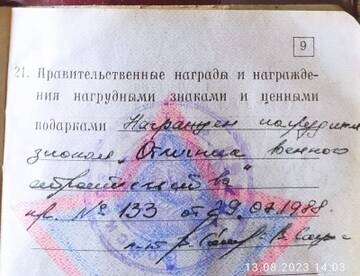 9
21. Правительственные награды и награжде-
ния нагрудными знаками и ценными
подарками Награжден нагрудным
знаком „Отличник военного
строительства"
пр. № 133 от 29.07.1988.
13.08.2023 14:03